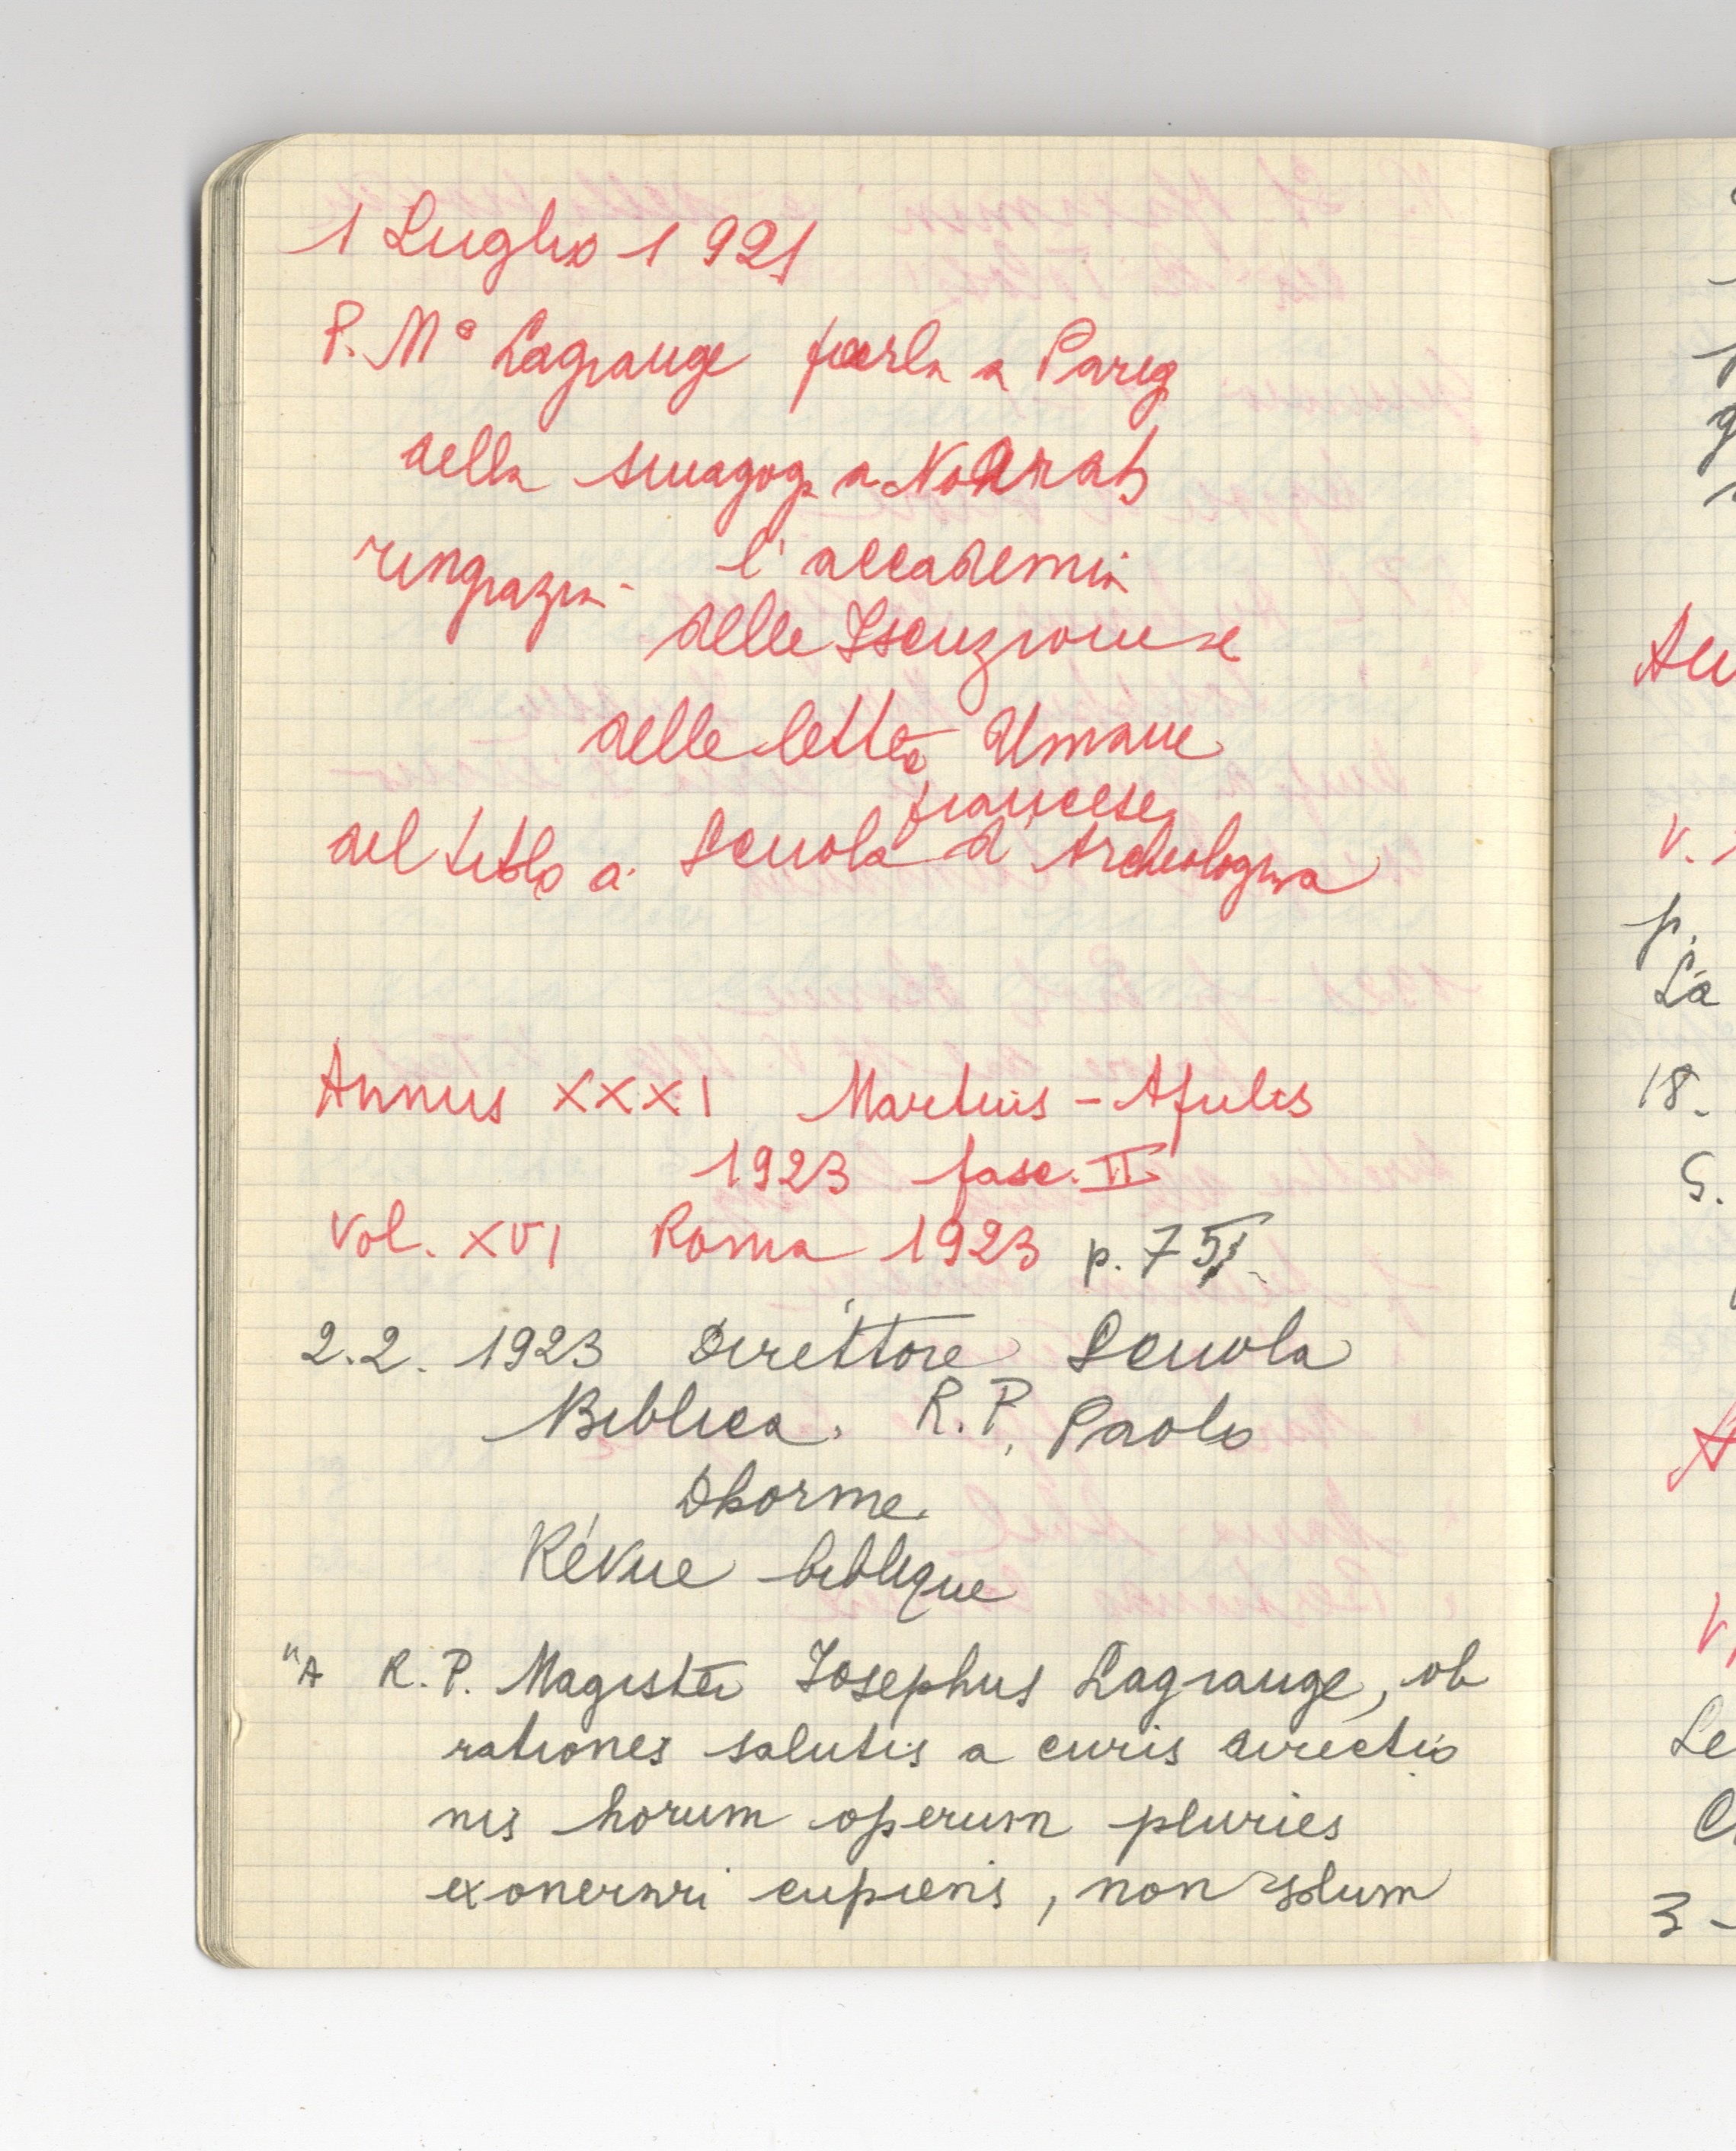 1 Luglio 1921
P. M° Lagrange parla a Parig
della sinagog. a Noarah
ringrazia l'accademia
delle Iscrizioni e
delle lettere Umane
francese
del titolo a Scuola d'Archeologia
Annus XXXI Martius - Aprilis
1923 fasc. II
Vol. XVI Roma 1923 p. 75
2.2. 1923 Direttore Scuola
Biblica. R. P. Paolo
Dhorme.
Révue biblique
"A R. P. Magister Josephus Lagrange, ob
rationes salutis a curis directio
nis horum operum pluries
exonerari cupiens, non solum
Le
La
18.
S.
V.
p.
3 -